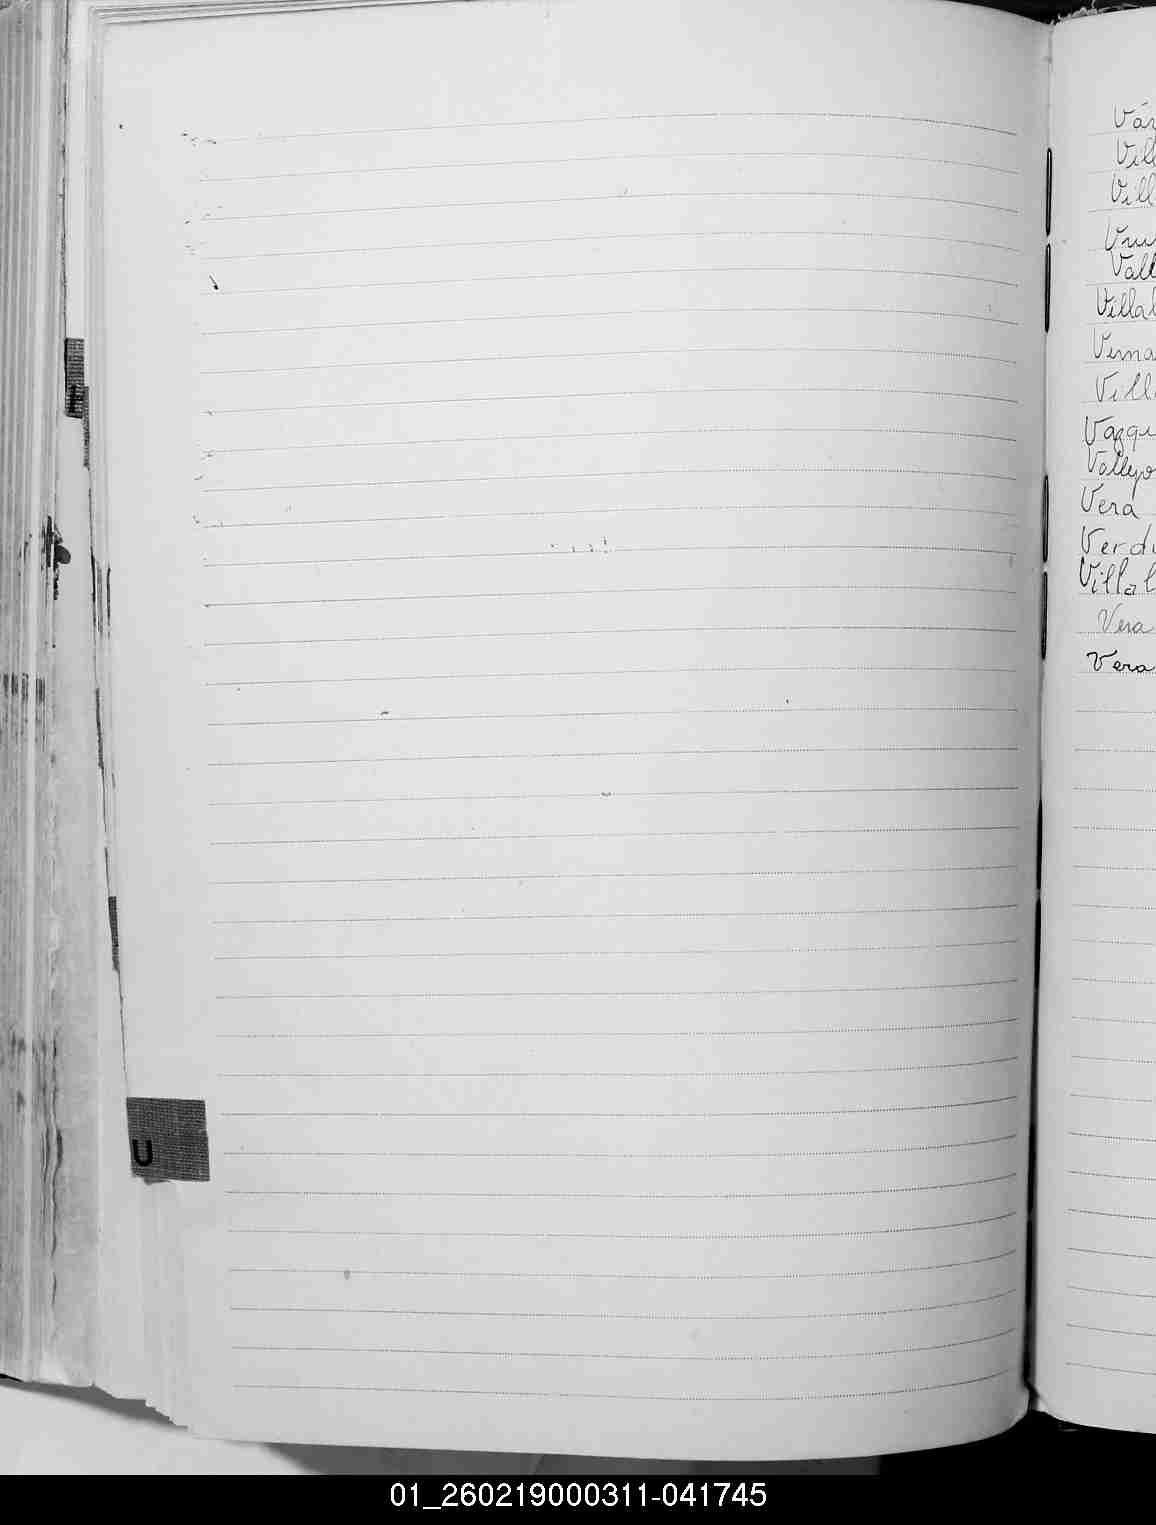 U
Vár
Vill
Vill
Vall
Villal
Verna
Vill
Vazqu
Vallejo
Vera
Verdu
Villal
Vera
Vera
01_260219000311-041745